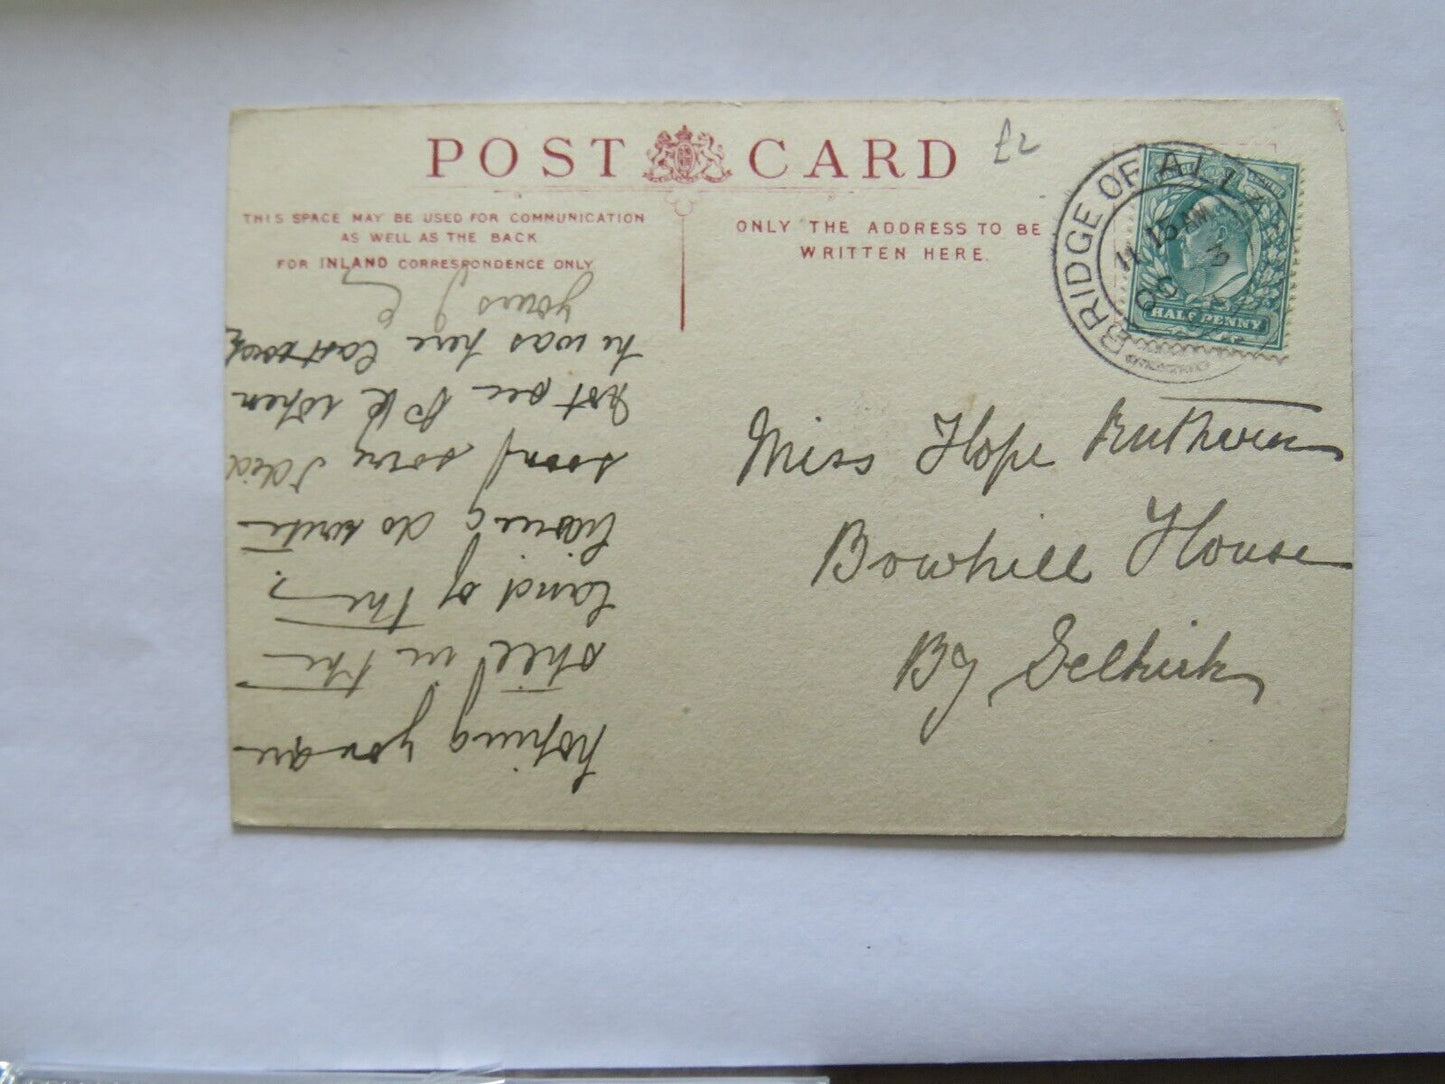 POST CARD
£2
THIS SPACE MAY BE USED FOR COMMUNICATION
AS WELL AS THE BACK
FOR INLAND CORRESPONDENCE ONLY
ONLY THE ADDRESS TO BE
WRITTEN HERE.
BRIDGE OF ALLAN
11 15 AM
HALF PENNY
Miss Hope Ruthven
Bowhill House
By Selkirk
hoping you are
still in the
land of the
living do write
soon sorry I did
not see when
he was here last week
yours